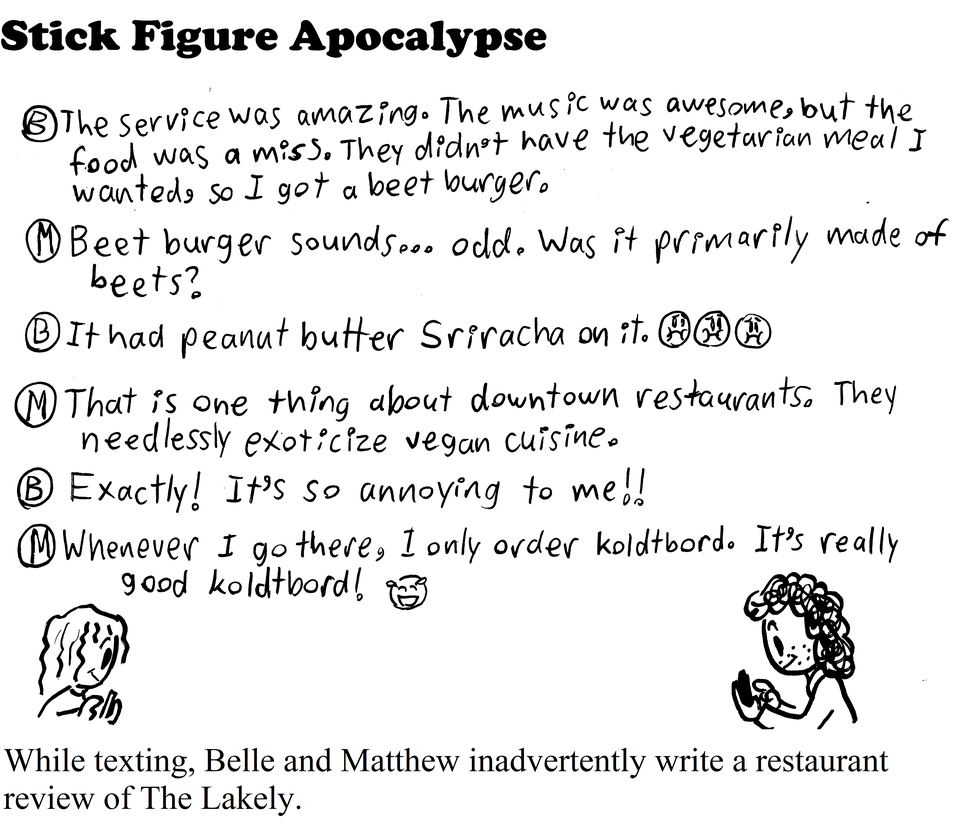 Stick Figure Apocalypse
Ⓑ The service was amazing. The music was awesome, but the
food was a miss. They didn't have the vegetarian meal I
wanted, so I got a beet burger.
Ⓜ Beet burger sounds... odd. Was it primarily made of
beets?
Ⓑ It had peanut butter Sriracha on it. 😠😠😠
Ⓜ That is one thing about downtown restaurants. They
needlessly exoticize vegan cuisine.
Ⓑ Exactly! It's so annoying to me!!
Ⓜ Whenever I go there, I only order koldtbord. It's really
good koldtbord! 😅
While texting, Belle and Matthew inadvertently write a restaurant
review of The Lakely.